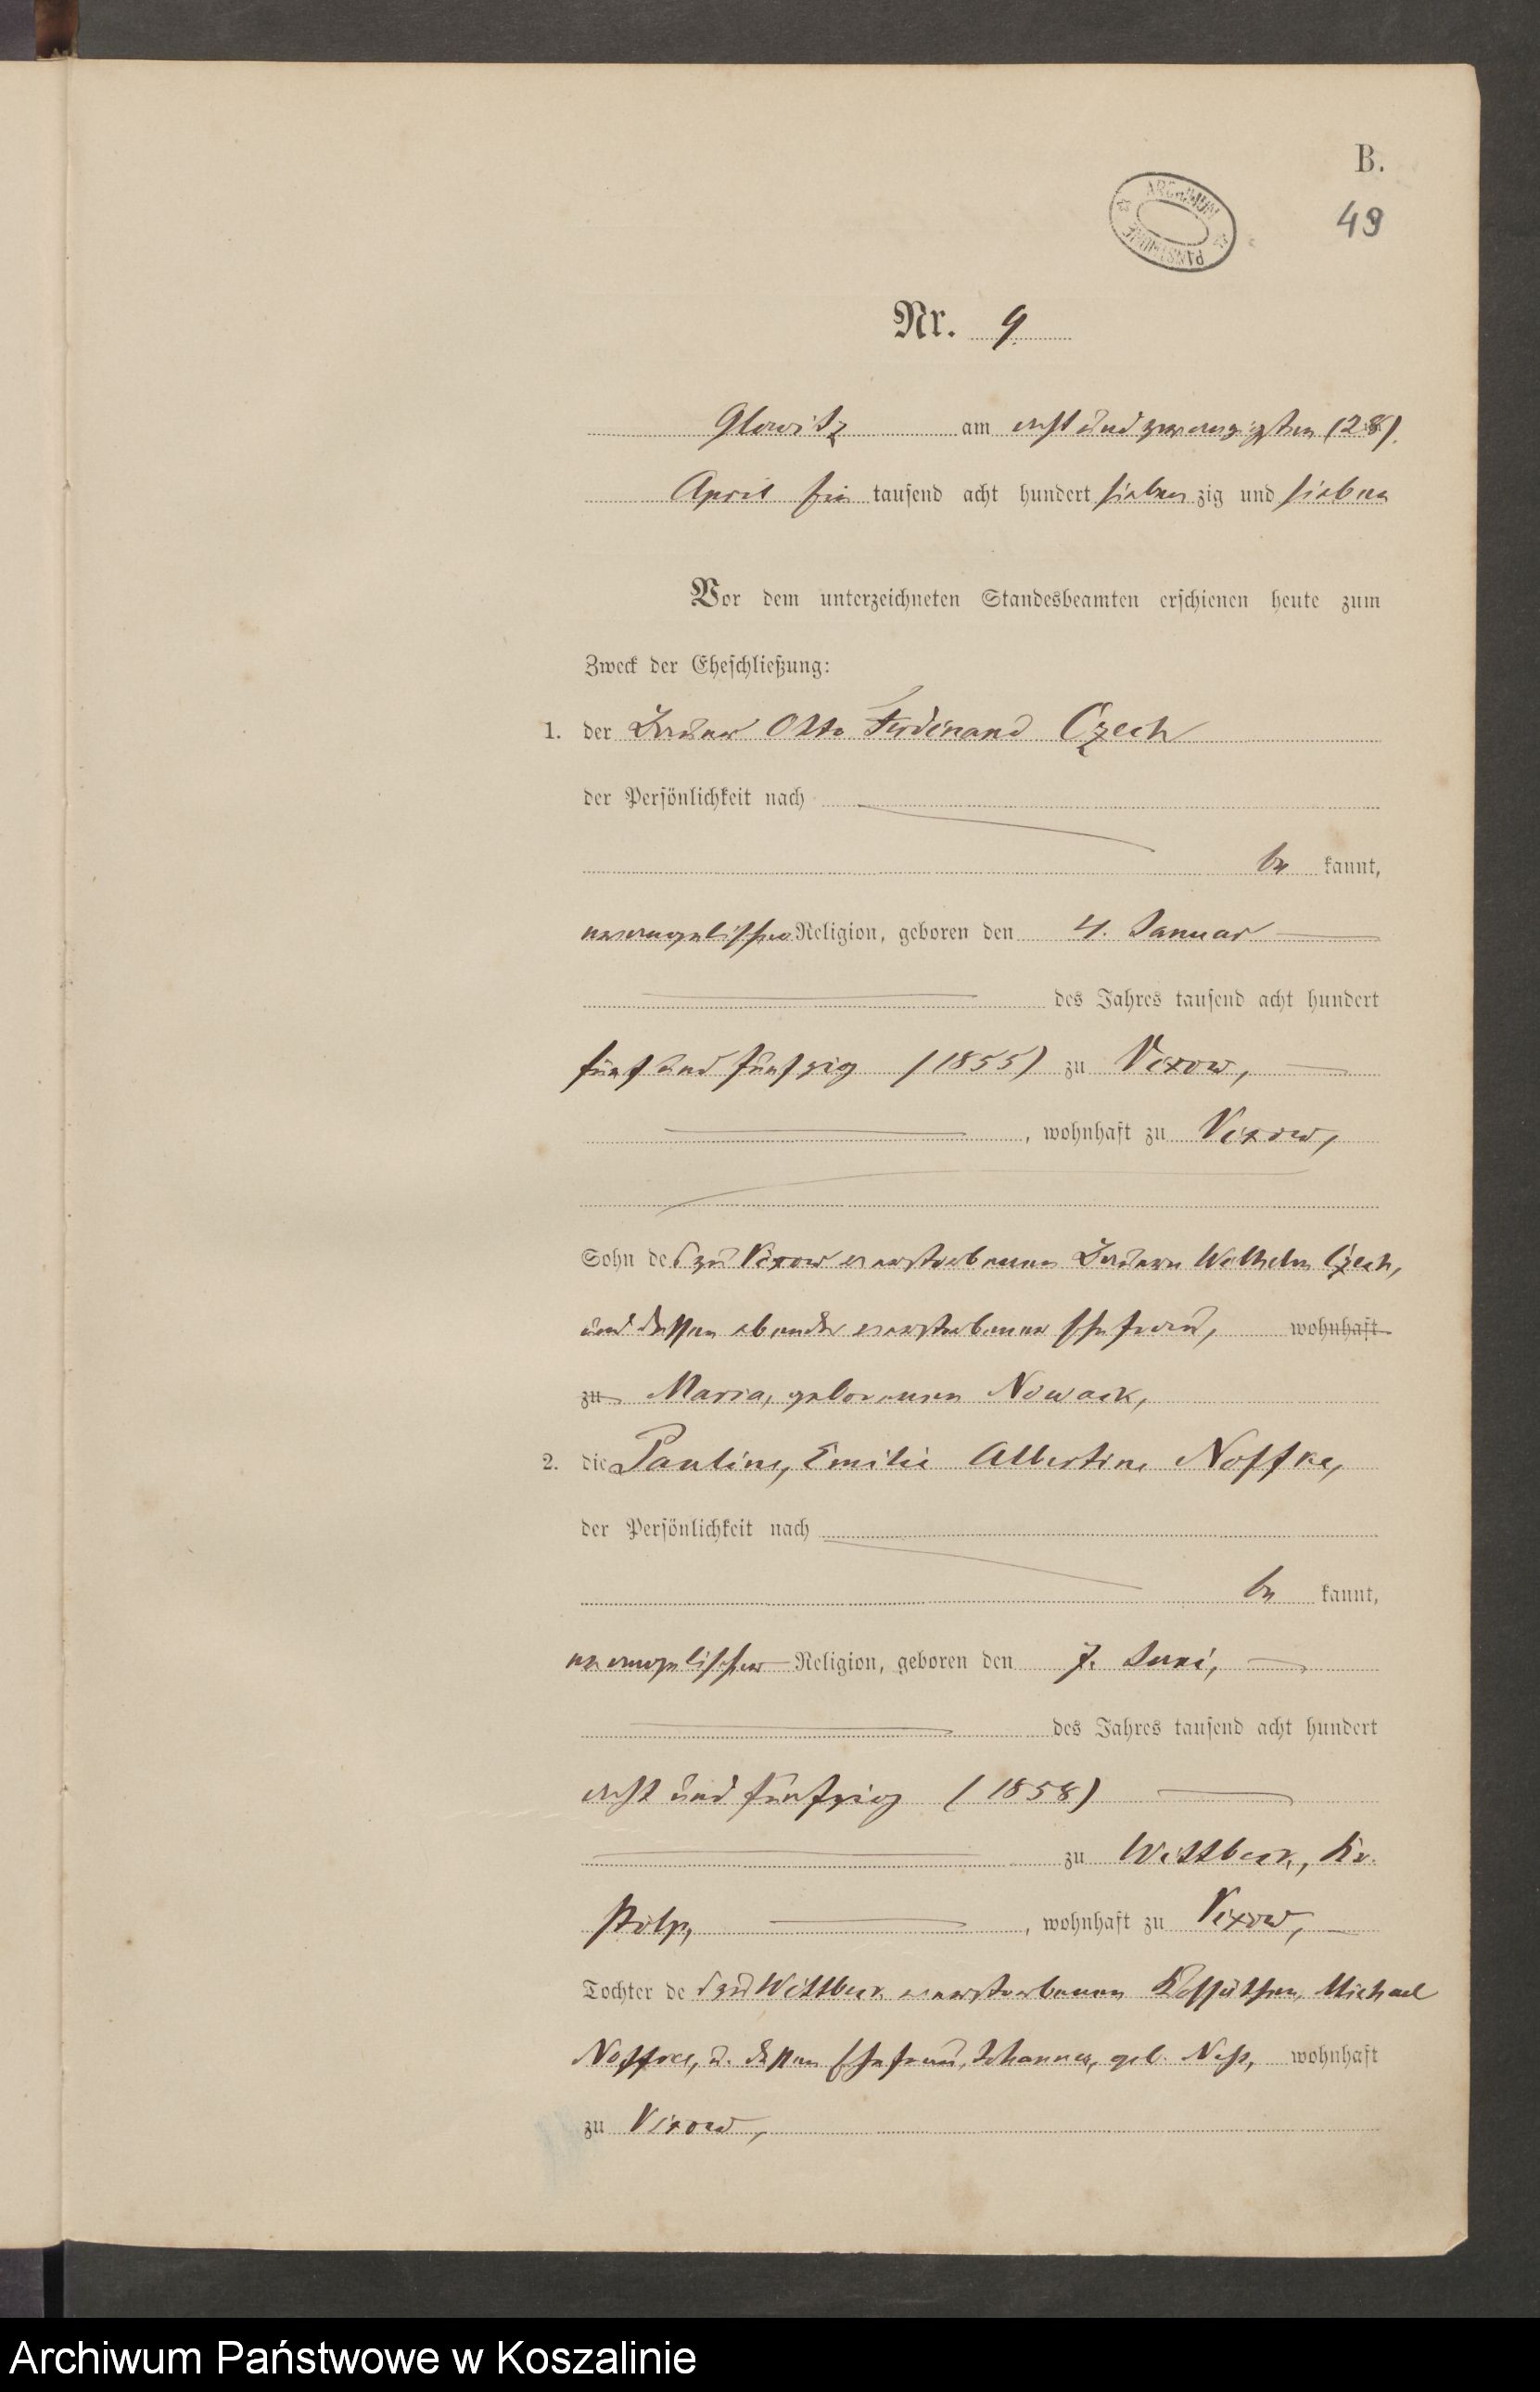 B.
ARCHIWUM PAŃSTWOWE
49
Nr. 9.
Glowitz am acht und zwanzigsten (28).
April ein tausend acht hundert sieben zig und sieben
Vor dem unterzeichneten Standesbeamten erschienen heute zum
Zweck der Eheschließung:
1. der Bauer Otto Ferdinand Czech
der Persönlichkeit nach
be kannt,
evangelischer Religion, geboren den 4. Januar
des Jahres tausend acht hundert
fünf und fünfzig (1855) zu Vixow,
, wohnhaft zu Vixow,
Sohn des zu Vixow verstorbenen Bauern Wilhelm Czech,
und dessen ebenda verstorbener Ehefrau, wohnhaft
zu Maria, geborenen Nowack,
2. die Pauline, Emilie Albertine Noffke,
der Persönlichkeit nach
be kannt,
evangelischer Religion, geboren den 7. Juni,
des Jahres tausend acht hundert
acht und fünfzig (1858)
zu Wittbeck, Kr.
Stolp, , wohnhaft zu Vixow,
Tochter des zu Wittbeck verstorbenen Kossäthen, Michael
Noffke, u. dessen Ehefrau, Johanne, geb. wohnhaft
zu Vixow,
Archiwum Państwowe w Koszalinie